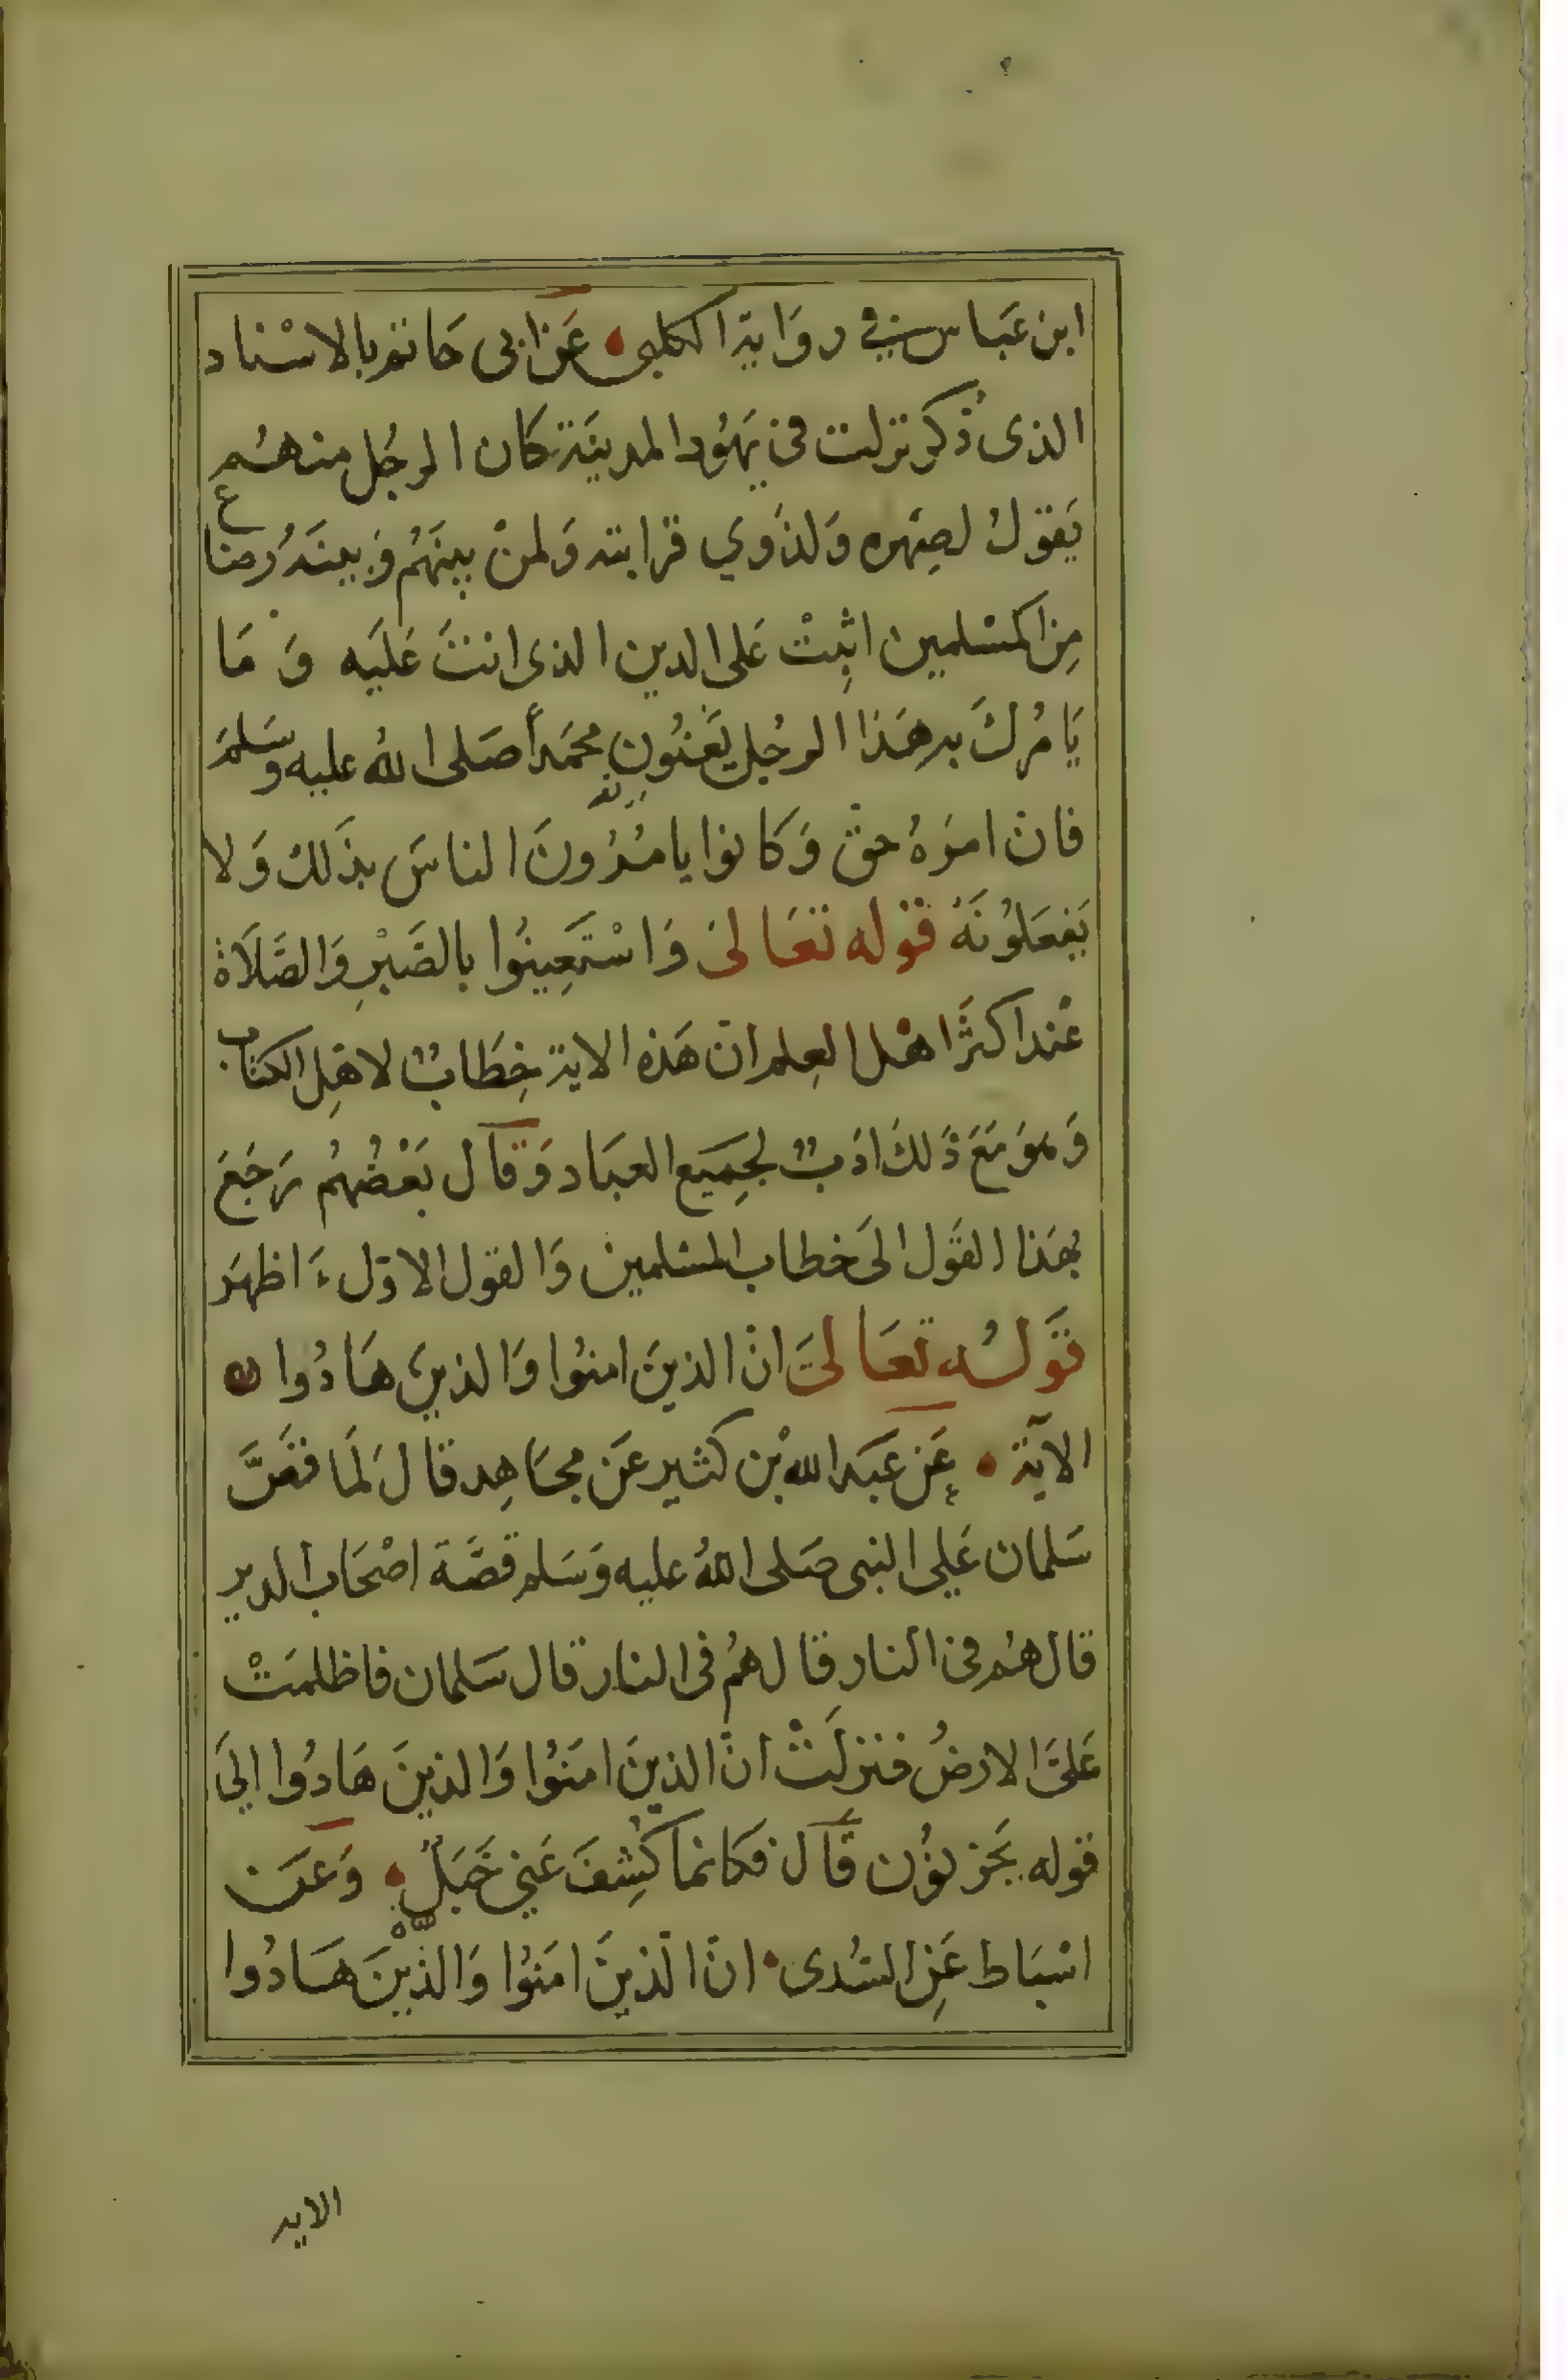 ابن عَبَاس في روَاية الكلبى عَن ابى حَاتم بالاسْناد
الذى ذُكر نزلت فى يَهُود المدينَة كان الرجُل منهُم
يَقولُ لصِهره وَلذَوي قرابته وَلمنْ بينَهُم وَبينَهُ رضاع
مِن المسْلمين اثبِتْ عَلى الدين الذى انتَ عَلَيه وَ مَا
يَامُركَ به هَذا الرجُل يَعْنُون محمَداً صَلى اللهُ عليه وسَلمَ
فان امرَهُ حق وَكانوا يامُرُونَ الناسَ بذَلك وَلا
يَفعَلوُنَهُ قوله تعَالىَ وَاسْتَعِينُوا بالصَبْرِ وَالصَّلَاة
عْند اكثَر اهْل العِلم ان هَذه الاية خِطَابٌ لاهْلِ الكتاب
وَهوَ مَعَ ذَلكَ ادَبٌ لجِمَيع العبَاد وَقال بَعْضُهُم رَجَعَ
بهَذا القَول الىَ خطاب المسْلمين وَالقول الاوّل اظهَر
قَولُه تعَالىَ انّ الذينَ امنُوا وَالذينَ هَادُوا
الآيَة عَن عَبَد الله بْن كثير عَن مجَاهِد قالَ لمَا قصَّ
سَلمان عَلى النبى صَلى اللهُ عليه وَسَلم قصَّة اصْحَاب الدير
قال هُم فى النار قال هُم فى النار قال سَلمان فاظلمَتْ
عَلىَّ الارضُ فنزلَتْ انّ الذينَ امَنُوا وَالذينَ هَادُوا الىَ
قوله يَحزنوُن قال فكانما كُشِفَ عَنى جَبَلٌ وَعَن
اسْبَاط عَنِ السُدى انّ الّذينَ امَنُوا وَالذّيْنَ هَادُوا
الايه